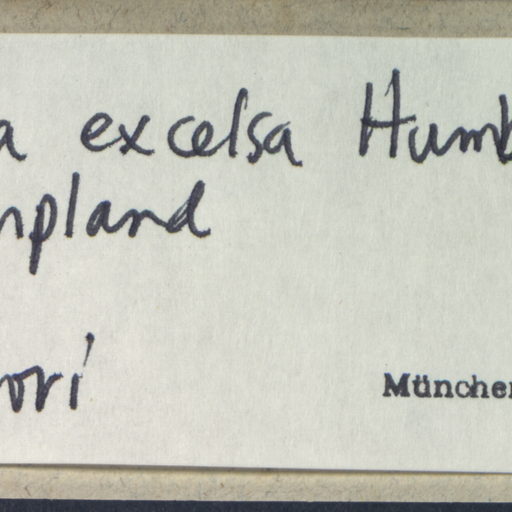 a excelsa Humb
npland
ori
München